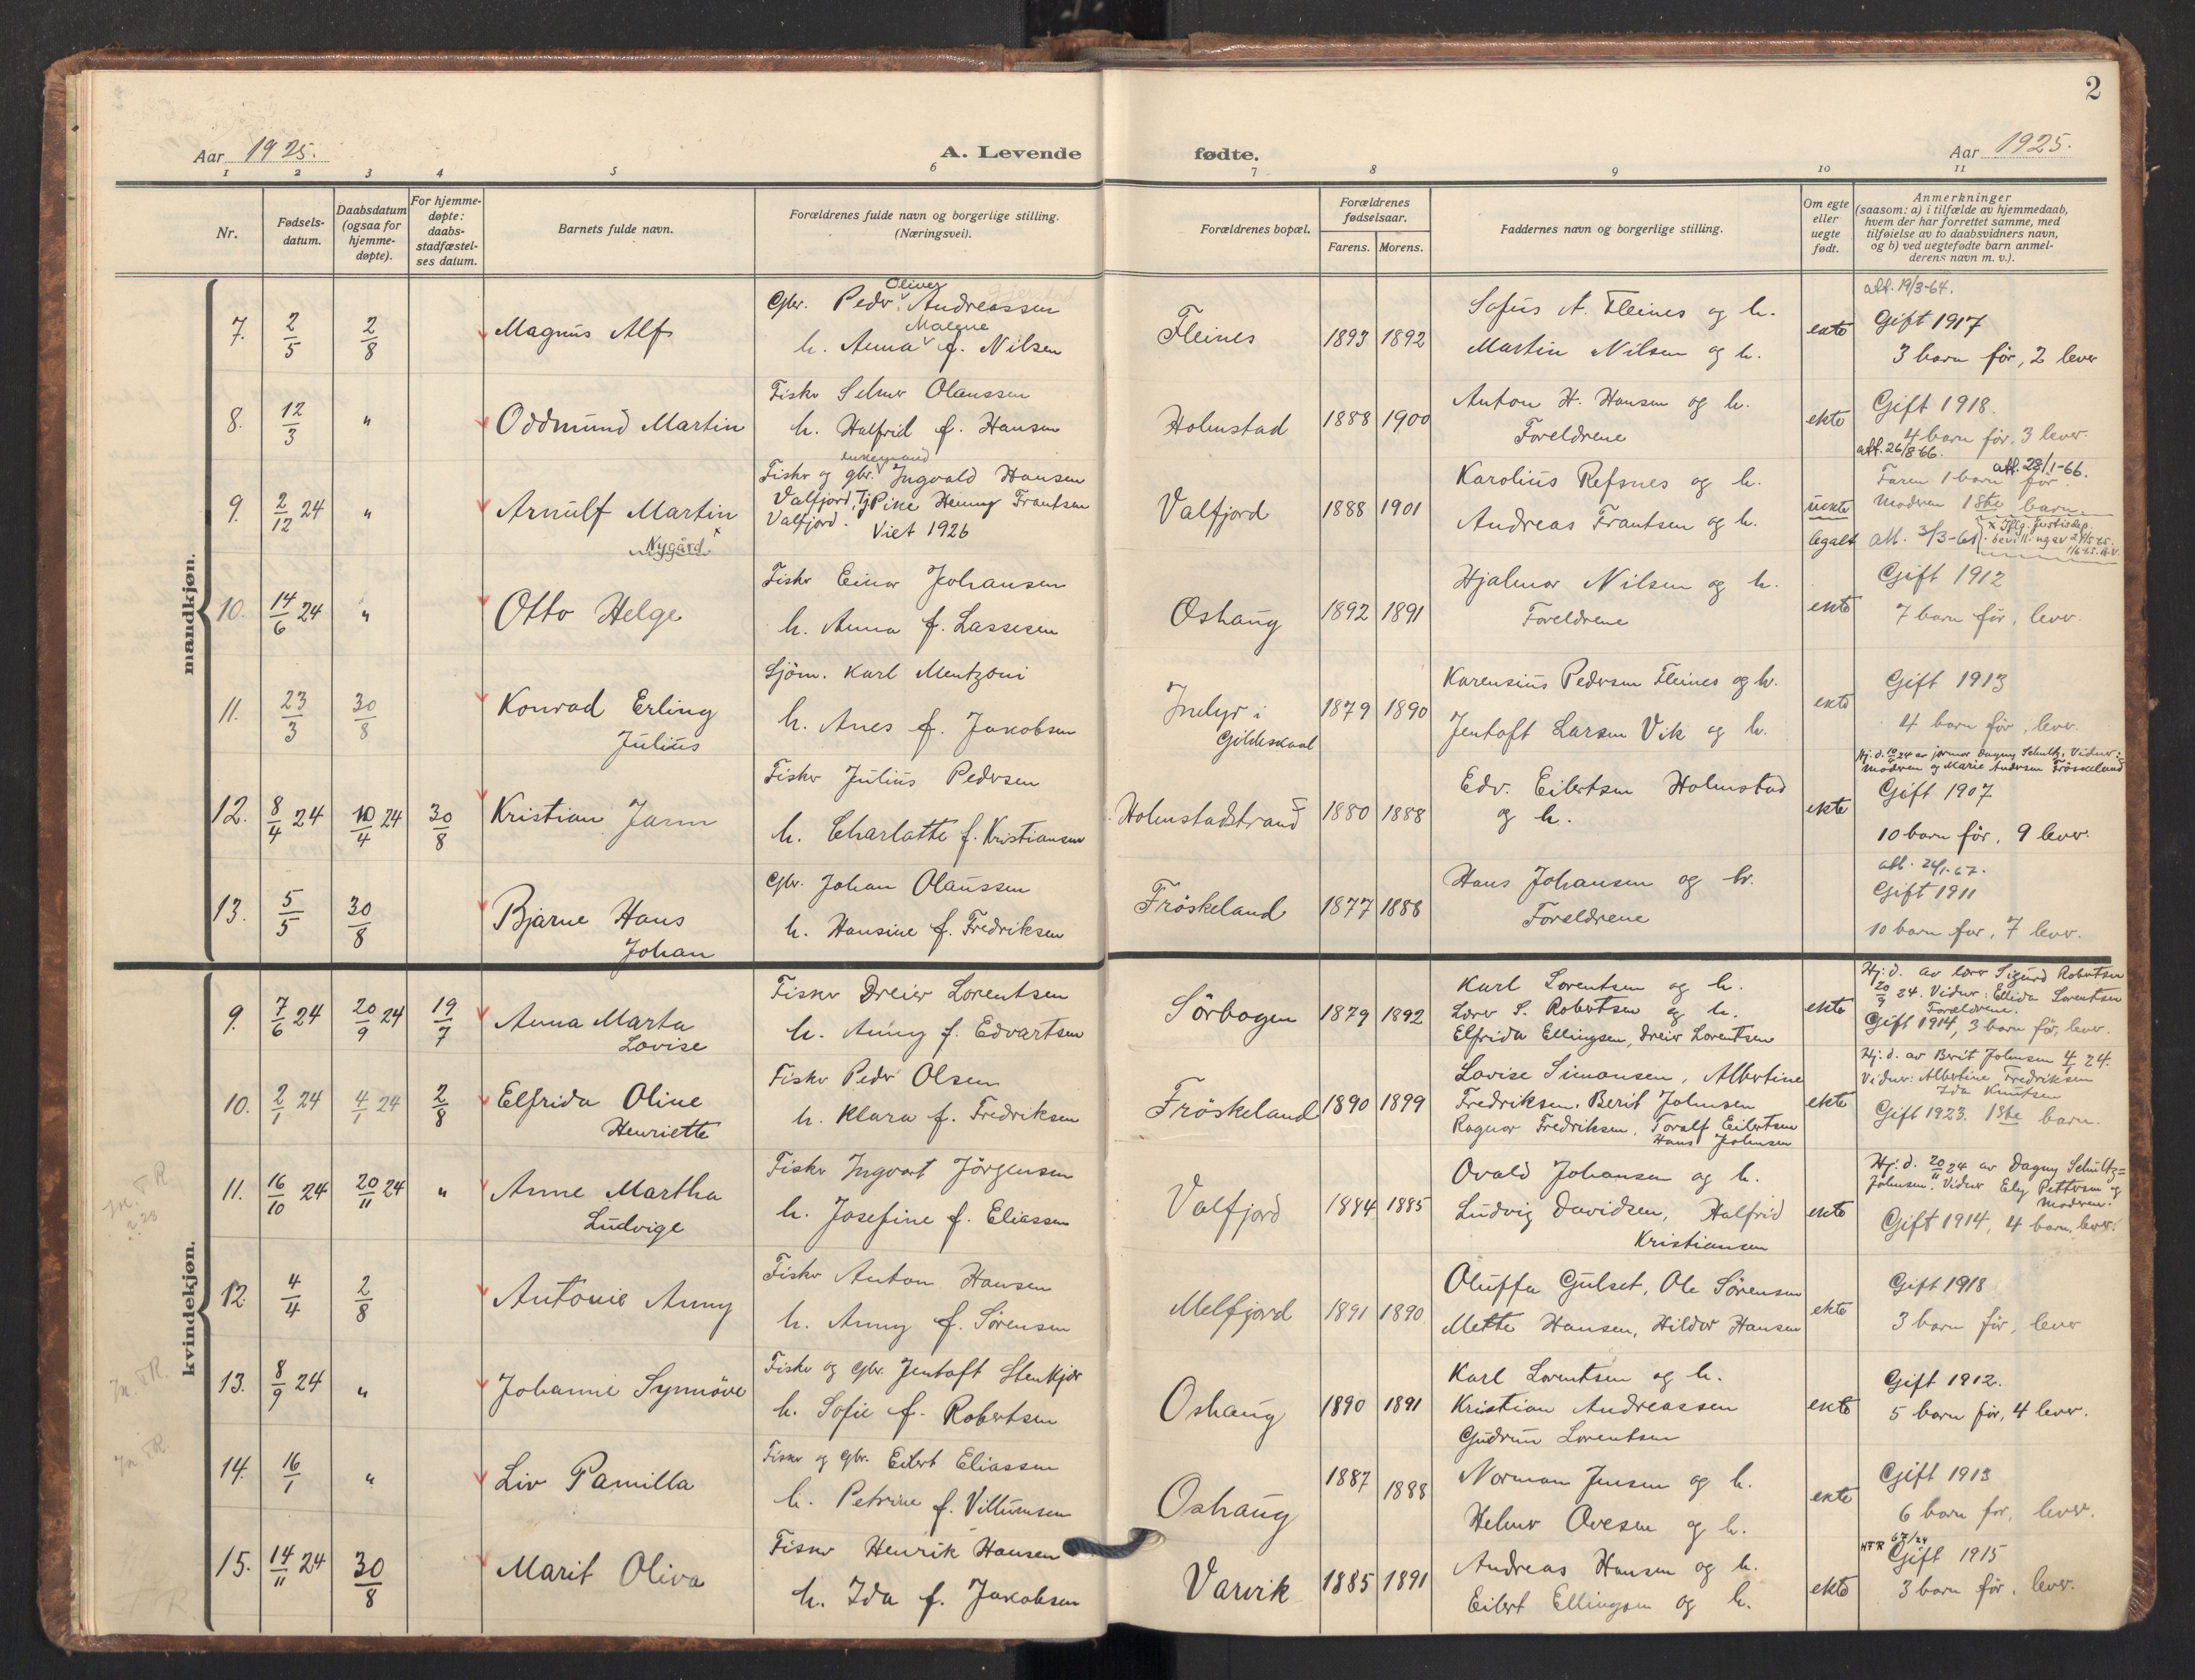 2
Aar 1925.
A. Levende
fødte.
Aar 1925.
1 2 3 4 5 6 7 8 9 10 11
Nr.
Fødsels-
datum.
Daabsdatum
(ogsaa for
hjemme-
døpte).
For hjemme-
døpte:
daabs-
stadfæstel-
ses datum.
Barnets fulde navn.
Forældrenes fulde navn og borgerlige stilling.
(Næringsvei).
Forældrenes bopæl.
Forældrenes
fødselsaar.
Farens. Morens.
Faddernes navn og borgerlige stilling.
Om egte
eller
uegte
født.
Anmerkninger
(saasom: a) i tilfælde av hjemmedaab,
hvem der har forrettet samme, med
tilføielse av to daabsvidners navn,
og b) ved uegtefødte barn anmel-
derens navn m. v.).
mandkjøn.
7. 2/5 2/8
Magnus Alf
Oliver
Gbr. Peder Andreassen
Malene
h. Anna f. Nilsen
Fleines
1893 1892
Sofus A. Fleines og h.
Martin Nilsen og h.
ekte
att. 19/3-64.
Gift 1917
3 barn før, 2 lever
8. 12/3 "
Oddmund Martin
Fisker Selmer Olaussen
h. Halfrid f. Hansen
Holmstad
1888 1900
Anton H. Hansen og h.
Foreldrene
ekte
Gift 1918.
4 barn før, 3 lever.
att. 26/8-66.
9. 2/12 24 "
Arnulf Martin
Nygård x
enkemand
Fisker og gbr. Ingvald Hansen
Valfjord, Tj Pike Henny Frantsen
Valfjord.
Viet 1926
Valfjord
1888 1901
Karolius Refsnes og h.
Andreas Frantsen og h.
uekte
legalt
att. 28/1-66.
Faren 1 barn før
Moderen 1ste barn
att. 3/3-61
x Iflg. Justisdep.
bevilling av
10. 14/6 24 "
Otto Helge
Fisker Einar Johansen
h. Anna f. Lassesen
Oshaug
1892 1891
Hjalmar Nilsen og h.
Foreldrene
ekte
Gift 1912
7 barn før, lever.
11. 23/3 30/8
Konrad Erling
Julius
Sjöm. Karl Mentzoni
h. Anes f. Jakobsen
Inelyr i
Gildeskaal
1879 1890
Karensius Pedersen Fleines og h.
Jentoft Larsen Vik og h.
ekte
Gift 1913
4 barn før, lever.
12. 8/4 24 10/4 24 30/8
Kristian Jann
Fisker Julius Pedersen
h. Charlotte f. Kristiansen
Holmstadstrand
1880 1888
Edv. Eilertsen Holmstad
og h.
ekte
Hj. d. 10/4 24 av jormor Dagny Schultz. Vidner:
Moderen og Marie Andersen Fröskeland
Gift 1907
10 barn før, 9 lever.
13. 5/5 30/8
Bjarne Hans
Johan
Gbr. Johan Olaussen
h. Hansine f. Fredriksen
Fröskeland
1877 1888
Hans Johansen og h.
Foreldrene
att. 24/1-67.
Gift 1911
10 barn før, 7 lever.
kvindekjøn.
9. 7/6 24 20/9 24 19/7
Anna Marta
Lovise
Fisker Dreier Lorentsen
h. Anny f. Edvartsen
Sörbogen
1879 1892
Karl Lorentsen og h.
Lærer S. Robertsen og h.
Elfrida Ellingsen, Dreier Lorentsen
ekte
Hj: d. av lærer Sigurd Robertsen
20/9 24. Vidner: Ellida Lorentsen
Foreldrene.
Gift 1914, 3 barn før, lever.
10. 2/1 24 4/1 24 2/8
Elfrida Oline
Henriette
Fisker Peder Olsen
h. Klara f. Fredriksen
Fröskeland
1890 1899
Lovise Simonsen, Albertine
Fredriksen, Berit Johnsen
Ragnar Fredriksen, Toralf Eilertsen
Hans Johnsen
ekte
Hj: d. av Berit Johnsen 4/1 24.
Vidner: Albertine Fredriksen
Ida Knutsen
Gift 1923. 1ste barn.
11. 16/10 24 20/11 24 "
Anne Martha
Ludvige
Fisker Ingvart Jörgensen
h. Josefine f. Eliassen
Valfjord
1884 1885
Ovald Johansen og h.
Ludvig Davidsen, Halfrid
Kristiansen
ekte
Hj: d. 20/11 24 av Dagny Schultz=
Johnsen. Vidner Ely Pettersen og
Moderen.
Gift 1914, 4 barn, lever.
12 4/4 2/8
Antonie Anny
Fisker Anton Hansen
h. Anny f. Sörensen
Melfjord
1891 1890
Oluffa Gulset, Ole Sörensen
Mette Hansen, Hildor Hansen
ekte
Gift 1918
3 barn før, lever
13. 8/9 24 "
Johanne Synnöve
Fisker og Gbr. Jentoft Stenkjær
h. Sofie f. Robertsen
Oshaug
1890 1891
Karl Lorentsen og h.
Kristian Andreassen
Gudrun Lorentsen
ekte
Gift 1912.
5 barn før, 4 lever.
14. 16/1 "
Liv Pamilla
Fisker og gbr. Eilert Eliassen
h. Petrine f. Villumsen
Oshaug
1887 1888
Norman Jensen og h.
Helmer Ovesen og h.
ekte
Gift 1913
6 barn før, lever.
15. 14/11 24 30/8
Marit Oliva
Fisker Henrik Hansen
h. Ida f. Jakobsen
Varvik
1885 1891
Andreas Hansen og h.
Eilert Ellingsen og h.
ekte
67/24
Gift 1915
3 barn før, lever.